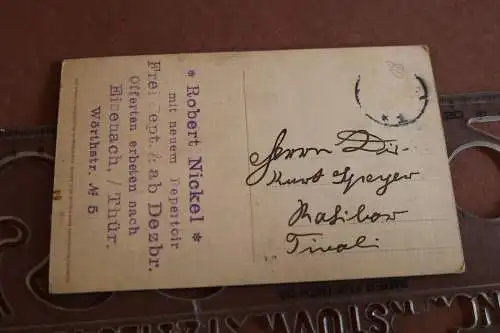 * Robert Nickel *
mit neuem Repertoir
Frei Sept. & ab Dezbr.
Offerten erbeten nach
Eisenach, /Thür.
Wörthstr. № 5
Herrn Dir.
Kurt Speyer
Ratibor
Tivoli
20